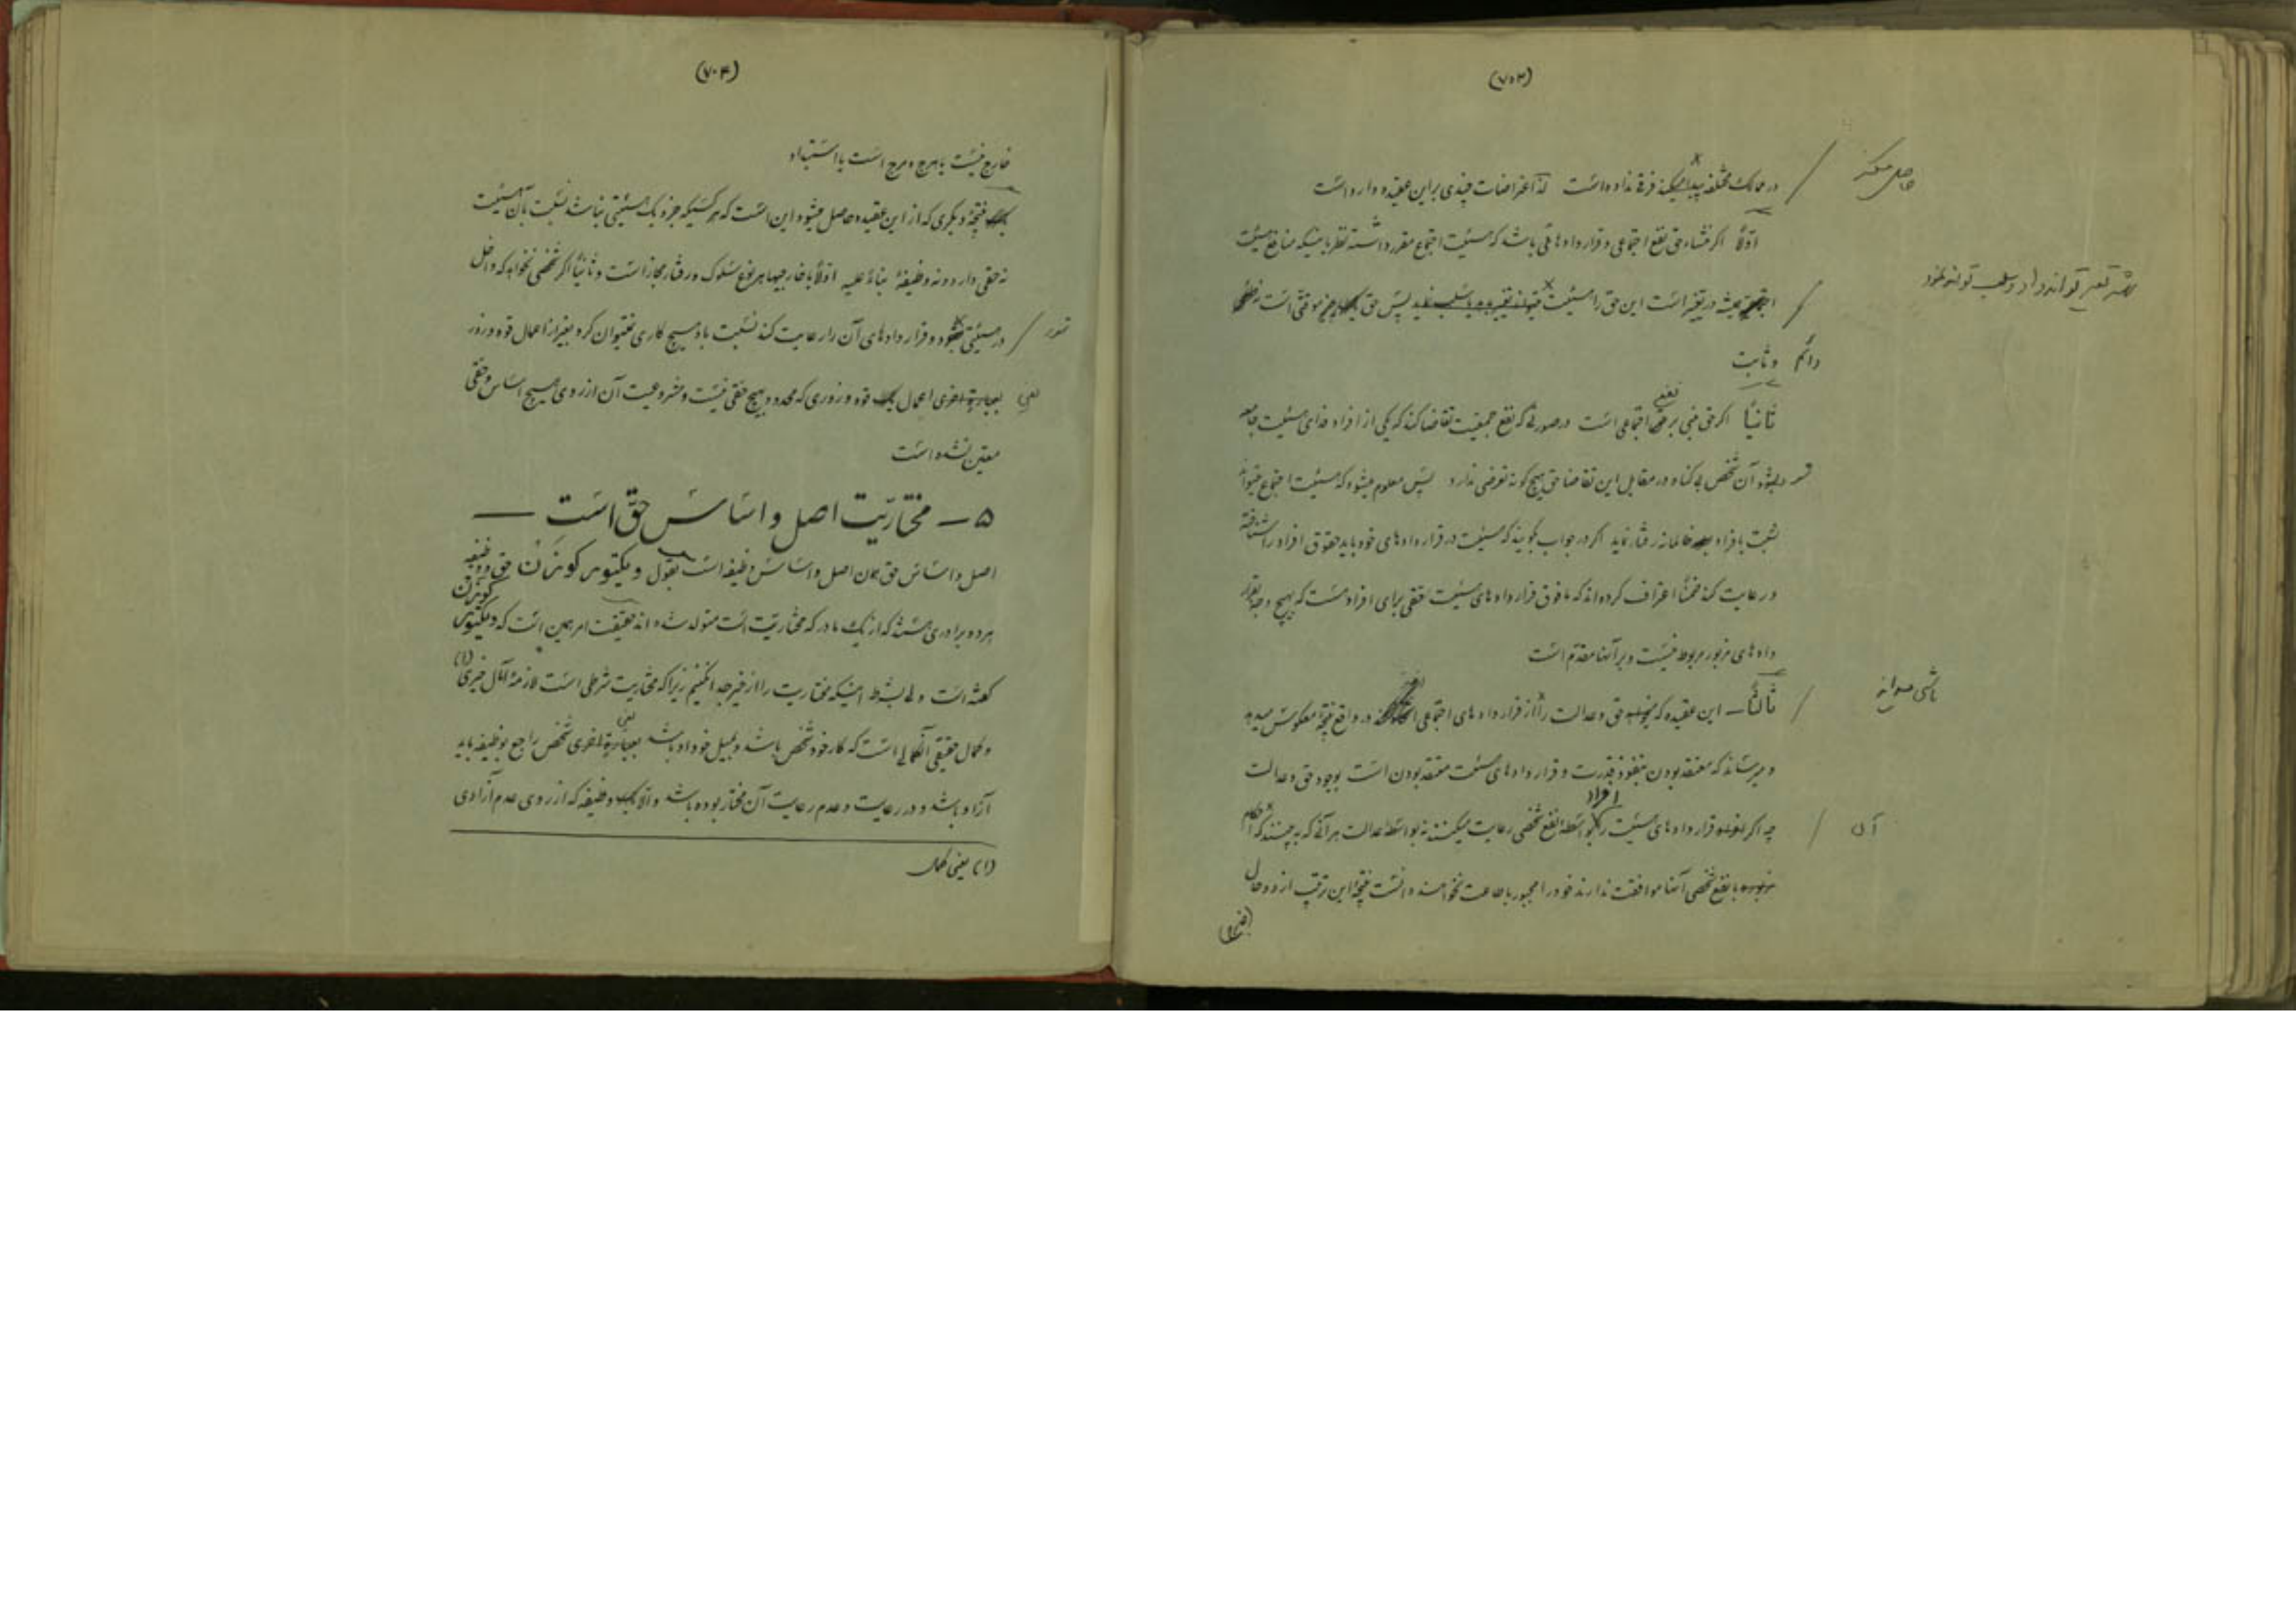 (۷۰۳)
در ممالک مختلفه پیدا میکند فرق نداده است لذا اعتراضات چندی براین عقیده وارد است
حاصل میکند
اولاً اگر منشاء حق نفع اجتماعی و قراردادهائی باشد که هیئت اجتماع مقرر داشته نظر باینکه منافع هیئت
همیشه در تغیّر است این حق را هیئت پس حق موقتی است نه
دائم و ثابت
ثانیاً اگر حق مبنی بر نفع اجتماعی است درصورتیکه نفع جمعیت تقاضا کند که یکی از افراد فدای هیئت جامعه
بشود آن شخص بی گناه در مقابل این تقاضا حق هیچگونه تعرضی ندارد پس معلوم میشود که هیئت اجتماع میتواند
نسبت بافراد ظالمانه رفتار نماید اگر در جواب گویند که هیئت در قراردادهای خود باید حقوق افراد را شناخته
و رعایت کند ضمناً اعتراف کرده اند که مافوق قراردادهای هیئت حقی برای افراد هست که بهیچ وجه بقرار
دادهای مزبور مربوط نیست و بر آنها مقدم است
ثالثاً ـ این عقیده که حق و عدالت را از قراردادهای اجتماعی در واقع نتیجه معکوس میدهد
ناشی میداند
و میرساند که معتقد بودن بنفوذ قدرت و قراردادهای هیئت معتقد بودن است بوجود حق و عدالت
چه اگر افراد قراردادهای هیئت را بواسطه نفع شخصی رعایت میکنند نه بواسطه عدالت هر آنی که به بینند که احکام
آن
با نفع شخصی آنها موافقت ندارند خود را مجبور باطاعت نخواهند دانست نتیجه این ترتیب از دو حال
(۷۰۴)
خارج نیست یا هرج و مرج است یا استبداد
نتیجه دیگری که از این عقیده حاصل میشود این است که هر کسیکه جزو یک هیئتی نباشد نسبت بآن هیئت
نه حقی دارد و نه وظیفه بناءً علیه اولاً با خارجیها هر نوع سلوک و رفتار مجاز است و ثانیاً اگر شخصی نخواهد که داخل
در هیئتی شود و قراردادهای آن را رعایت کند نسبت باو هیچ کاری نمیتوان کرد بغیر از اعمال قوه و زور
یعنی اعمال قوه و زوری که محدود بهیچ حقی نیست و مشروعیت آن از روی هیچ اساس و حقی
معین نشده است
۵ ـ مختاریّت اصل و اساس حقّ است ـ
اصل و اساس حق همان اصل و اساس وظیفه است بقول ویکتور کوزن حق و وظیفه
هر دو برادری هستند که از یک مادر که مختاریت است متولد شده اند حقیقت امر همین است که ویکتور کوزن
گفته است ولی بشرط اینکه مختاریت را از خیر جدا نکنیم زیرا که مختاریت شرطی است لازمه آمال خیری (۱)
و کمال حقیقی آنکمالی است که کار خود شخص باشد و بمیل خود او باشد یعنی شخص راجع بوظیفه باید
آزاد باشد و در رعایت و عدم رعایت آن مختار بوده باشد والا وظیفه که از روی عدم آزادی
(۱) یعنی کمال